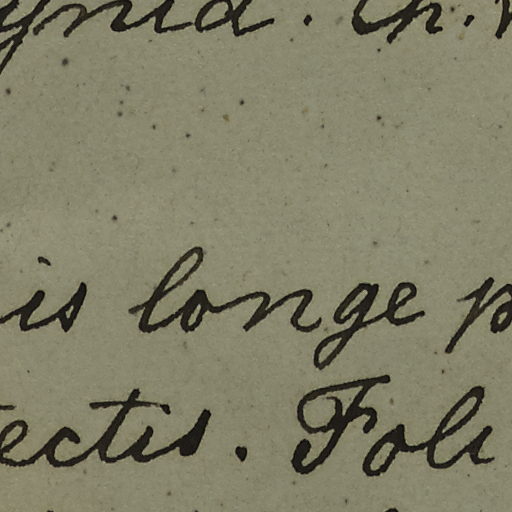 ynia. Ch.
is longe p
ectis. Foli